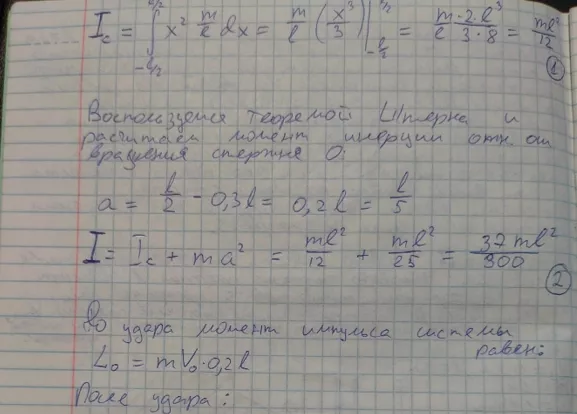 I_c = ∫_{-l/2}^{l/2} x² m/l dx = m/l (x³/3) |_{-l/2}^{l/2} = m·2·l³/l·3·8 = ml²/12
(1)
Воспользуемся теоремой Штерна и
расчитаем момент инерции отн. оси
вращения стержня О:
a = l/2 - 0,3l = 0,2l = l/5
I = I_c + ma² = ml²/12 + ml²/25 = 37ml²/300
(2)
До удара момент импульса системы
равен:
L₀ = mV₀·0,2l
После удара: